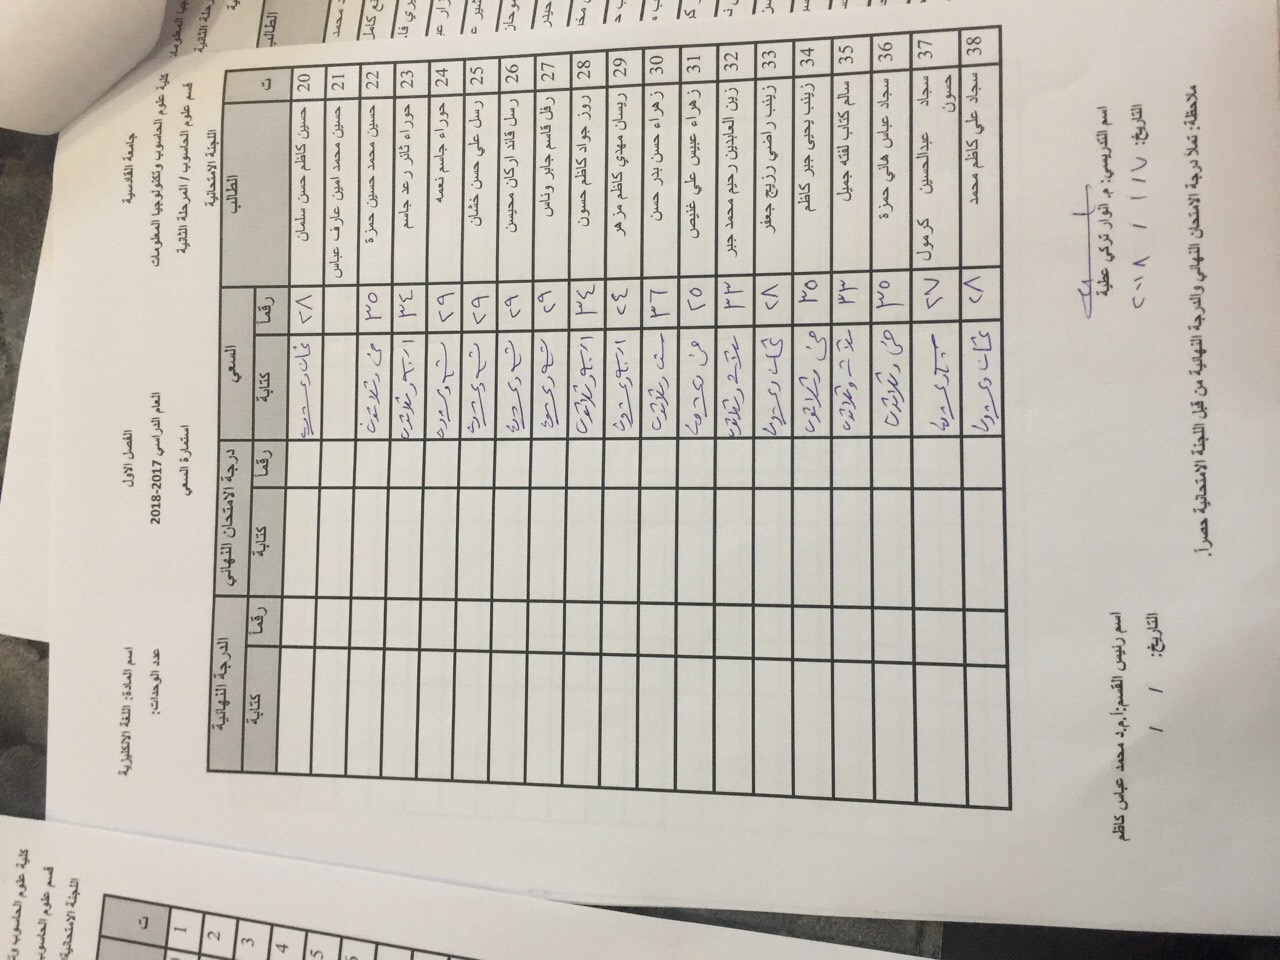 جامعة القادسية
كلية علوم الحاسوب وتكنولوجيا المعلومات
قسم علوم الحاسوب / المرحلة الثانية
اللجنة الامتحانية
الفصل الاول
العام الدراسي 2017-2018
استمارة السعي
اسم المادة: اللغة الانكليزية
عدد الوحدات:
ت الطالب السعي درجة الامتحان النهائي الدرجة النهائية
رقماً كتابة رقماً كتابة رقماً كتابة
20 حسين كاظم حسن سلمان ٢٨ ثمان وعشرون
21 حسين محمد امين عارف عباس
22 حسين محمد حسين حمزة ٣٥ خمس وثلاثون
23 حوراء ثائر رعد جاسم ٣٤ اربع وثلاثون
24 حوراء جاسم نعمه ٢٩ تسع وعشرون
25 رسل علي حسن خشان ٢٩ تسع وعشرون
26 رسل قائد اركان محيسن ٢٩ تسع وعشرون
27 رفل قاسم جابر وناس ٢٩ تسع وعشرون
28 روز جواد كاظم حسون ٣٤ اربع وثلاثون
29 ريسان مهدي كاظم مزهر ٢٤ اربع وعشرون
30 زهراء حسن بدر حسن ٣٦ ست وثلاثون
31 زهراء عبيس علي غنيص ٢٥ خمس وعشرون
32 زين العابدين رحيم محمد جبر ٣٣ ثلاث وثلاثون
33 زينب راضي رزيج جعفر ٢٨ ثمان وعشرون
34 زينب يحيى جبر كاظم ٣٥ خمس وثلاثون
35 سالم كتاب لفته جميل ٣٣ ثلاث وثلاثون
36 سجاد عباس هاني حمزة ٣٥ خمس وثلاثون
37 سجاد عبدالحسين كرمول حسون ٢٧ سبع وعشرون
38 سجاد علي كاظم محمد ٢٨ ثمان وعشرون
اسم التدريسي: م. انوار تركي عطية
التاريخ: ١٧ / ١ / ٢٠١٨
اسم رئيس القسم: أ.م.د محمد عباس كاظم
التاريخ: / /
ملاحظة: تملأ درجة الامتحان النهائي والدرجة النهائية من قبل اللجنة الامتحانية حصراً.
كلية علوم الحاسوب
قسم علوم الحاسوب
اللجنة الامتحانية
ت
1
2
3
4
5